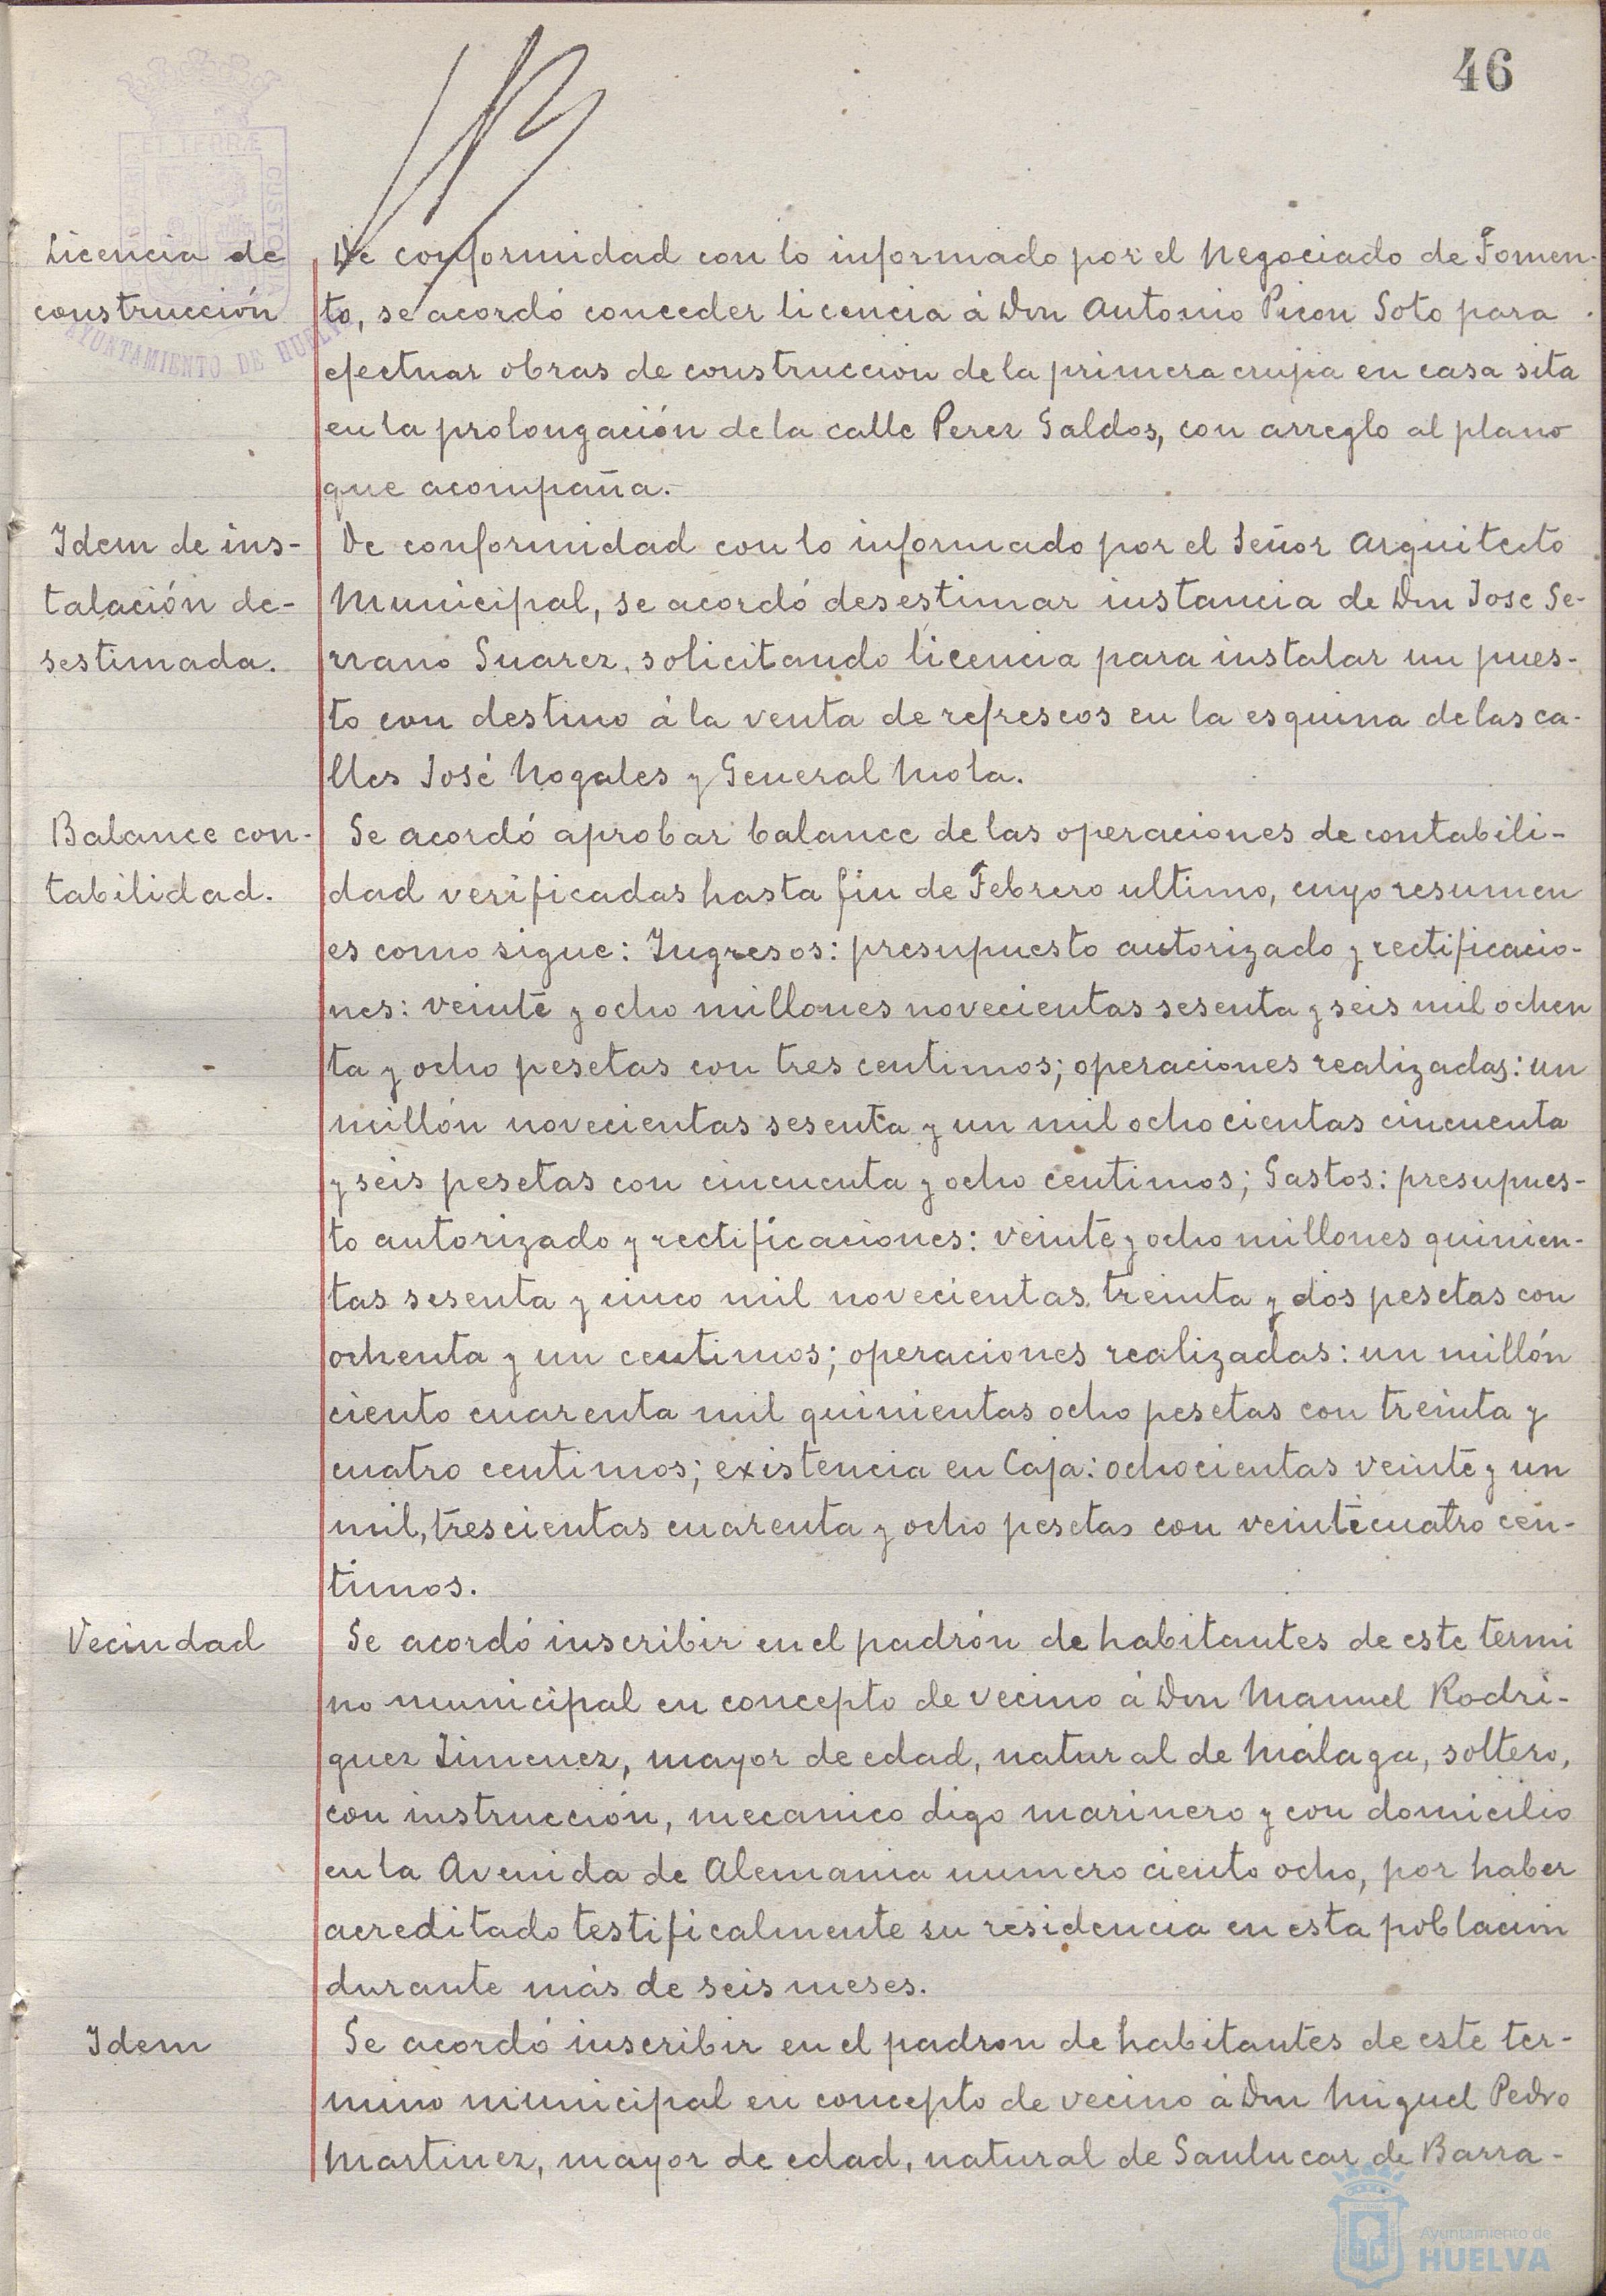 46
Licencia de
construcción
De conformidad con lo informado por el Negociado de Fomen-
to, se acordó conceder licencia á Don Antonio Picon Soto para
efectuar obras de construccion de la primera crujia en casa sita
en la prolongación de la calle Perez Galdos, con arreglo al plano
que acompaña.-
Idem de ins-
talación de-
sestimada.
De conformidad con lo informado por el Señor Arquitecto
Municipal, se acordó desestimar instancia de Don Jose Se-
rrano Suarez, solicitando licencia para instalar un pues-
to con destino á la venta de refrescos en la esquina de las ca-
lles José Nogales y General Mola.
Balance con-
tabilidad.
Se acordó aprobar balance de las operaciones de contabili-
dad verificadas hasta fin de Febrero ultimo, cuyo resumen
es como sigue: Ingresos: presupuesto autorizado y rectificacio-
nes: veinte y ocho millones novecientas sesenta y seis mil ochen
ta y ocho pesetas con tres centimos; operaciones realizadas: un
millón novecientas sesenta y un mil ochocientas cincuenta
y seis pesetas con cincuenta y ocho centimos; Gastos: presupues-
to autorizado y rectificaciones: veinte y ocho millones quinien-
tas sesenta y cinco mil novecientas treinta y dos pesetas con
ochenta y un centimos; operaciones realizadas: un millón
ciento cuarenta mil quinientas ocho pesetas con treinta y
cuatro centimos; existencia en Caja: ochocientas veinte y un
mil, trescientas cuarenta y ocho pesetas con veinticuatro cen-
timos.
Vecindad
Se acordó inscribir en el padrón de habitantes de este termi
no municipal en concepto de vecino á Don Manuel Rodri-
guez Jimenez, mayor de edad, natural de Málaga, soltero,
con instrucción, mecanico digo marinero y con domicilio
en la Avenida de Alemania numero ciento ocho, por haber
acreditado testificalmente su residencia en esta poblacion
durante más de seis meses.
Idem
Se acordó inscribir en el padron de habitantes de este ter-
mino municipal en concepto de vecino á Don Miguel Pedro
Martinez, mayor de edad, natural de Sanlucar de Barra-
ET TERRÆ
CUSTO
AYUNTAMIENTO DE HUELVA
Ayuntamiento de
HUELVA